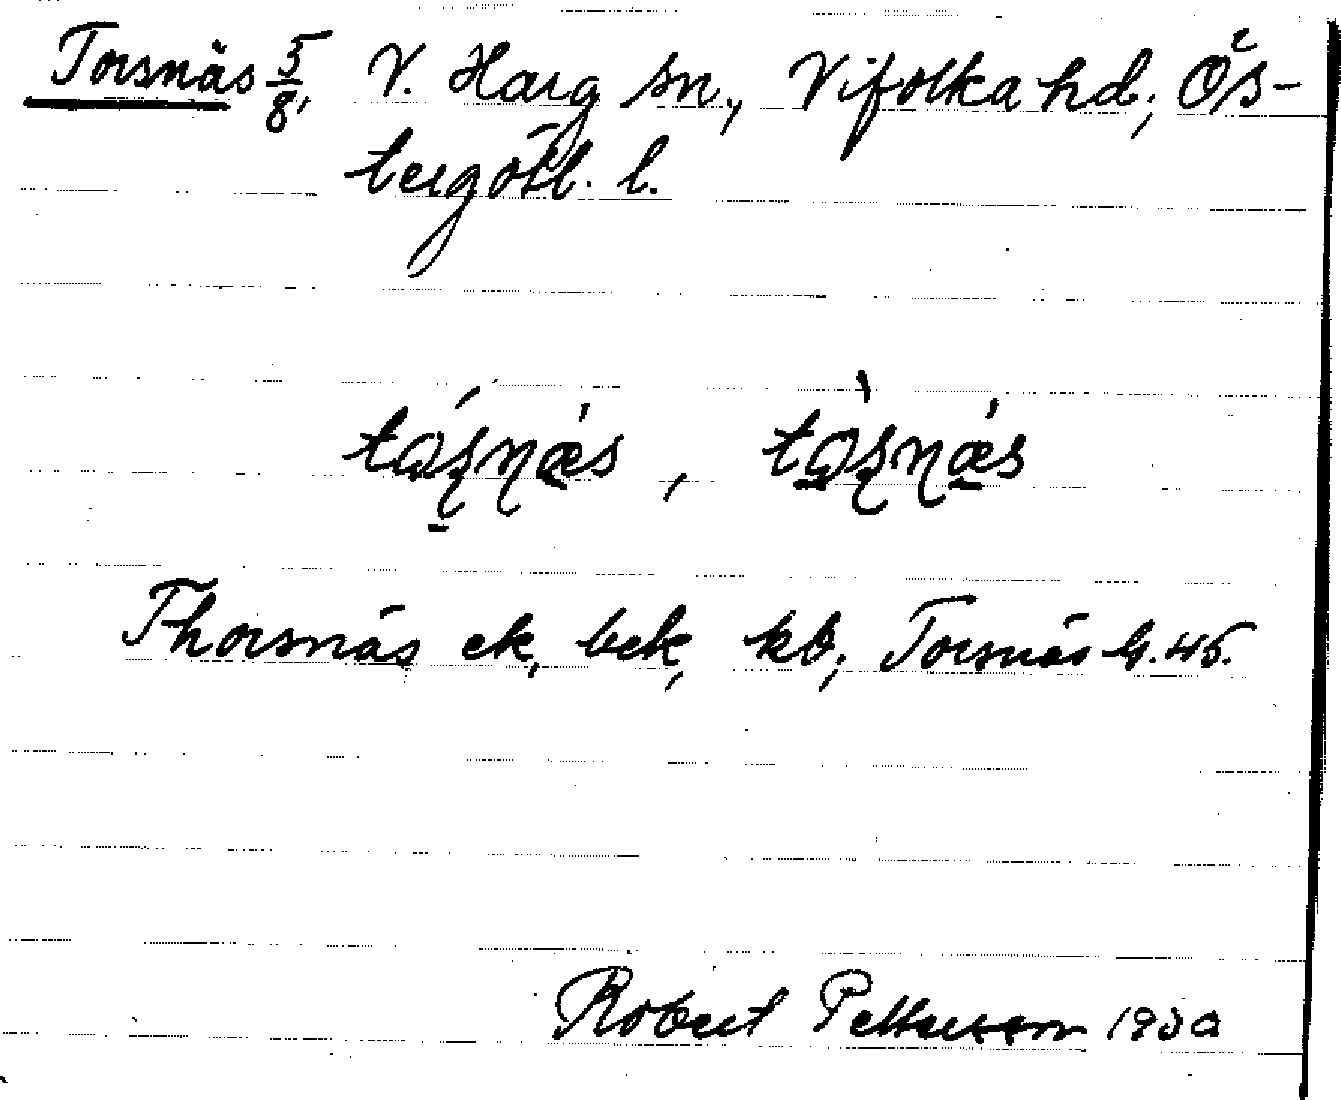 Torsnäs 5/8, V. Harg sn., Vifolka hd, Ös-
tergötl. l.
Thorsnäs ek, bek, kb, Torsnäs G.45.
Robert Pettersson 1930